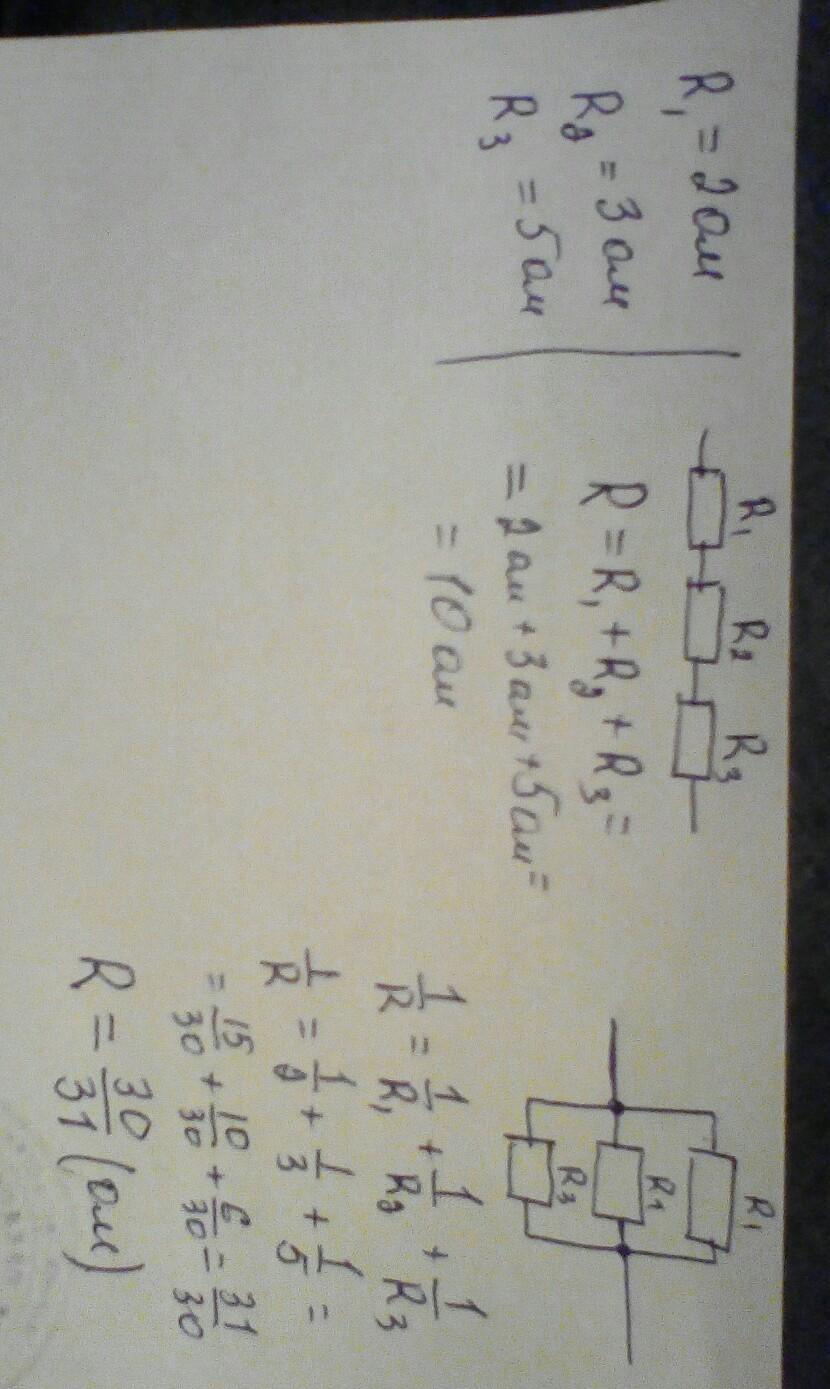 R₁ = 2 ом
R₂ = 3 ом
R₃ = 5 ом
R₁ R₂ R₃
R = R₁ + R₂ + R₃ =
= 2 ом + 3 ом + 5 ом =
= 10 ом
R₁
R₁
R₃
1/R = 1/R₁ + 1/R₂ + 1/R₃
1/R = 1/2 + 1/3 + 1/5 =
= 15/30 + 10/30 + 6/30 = 31/30
R = 30/31 (ом)